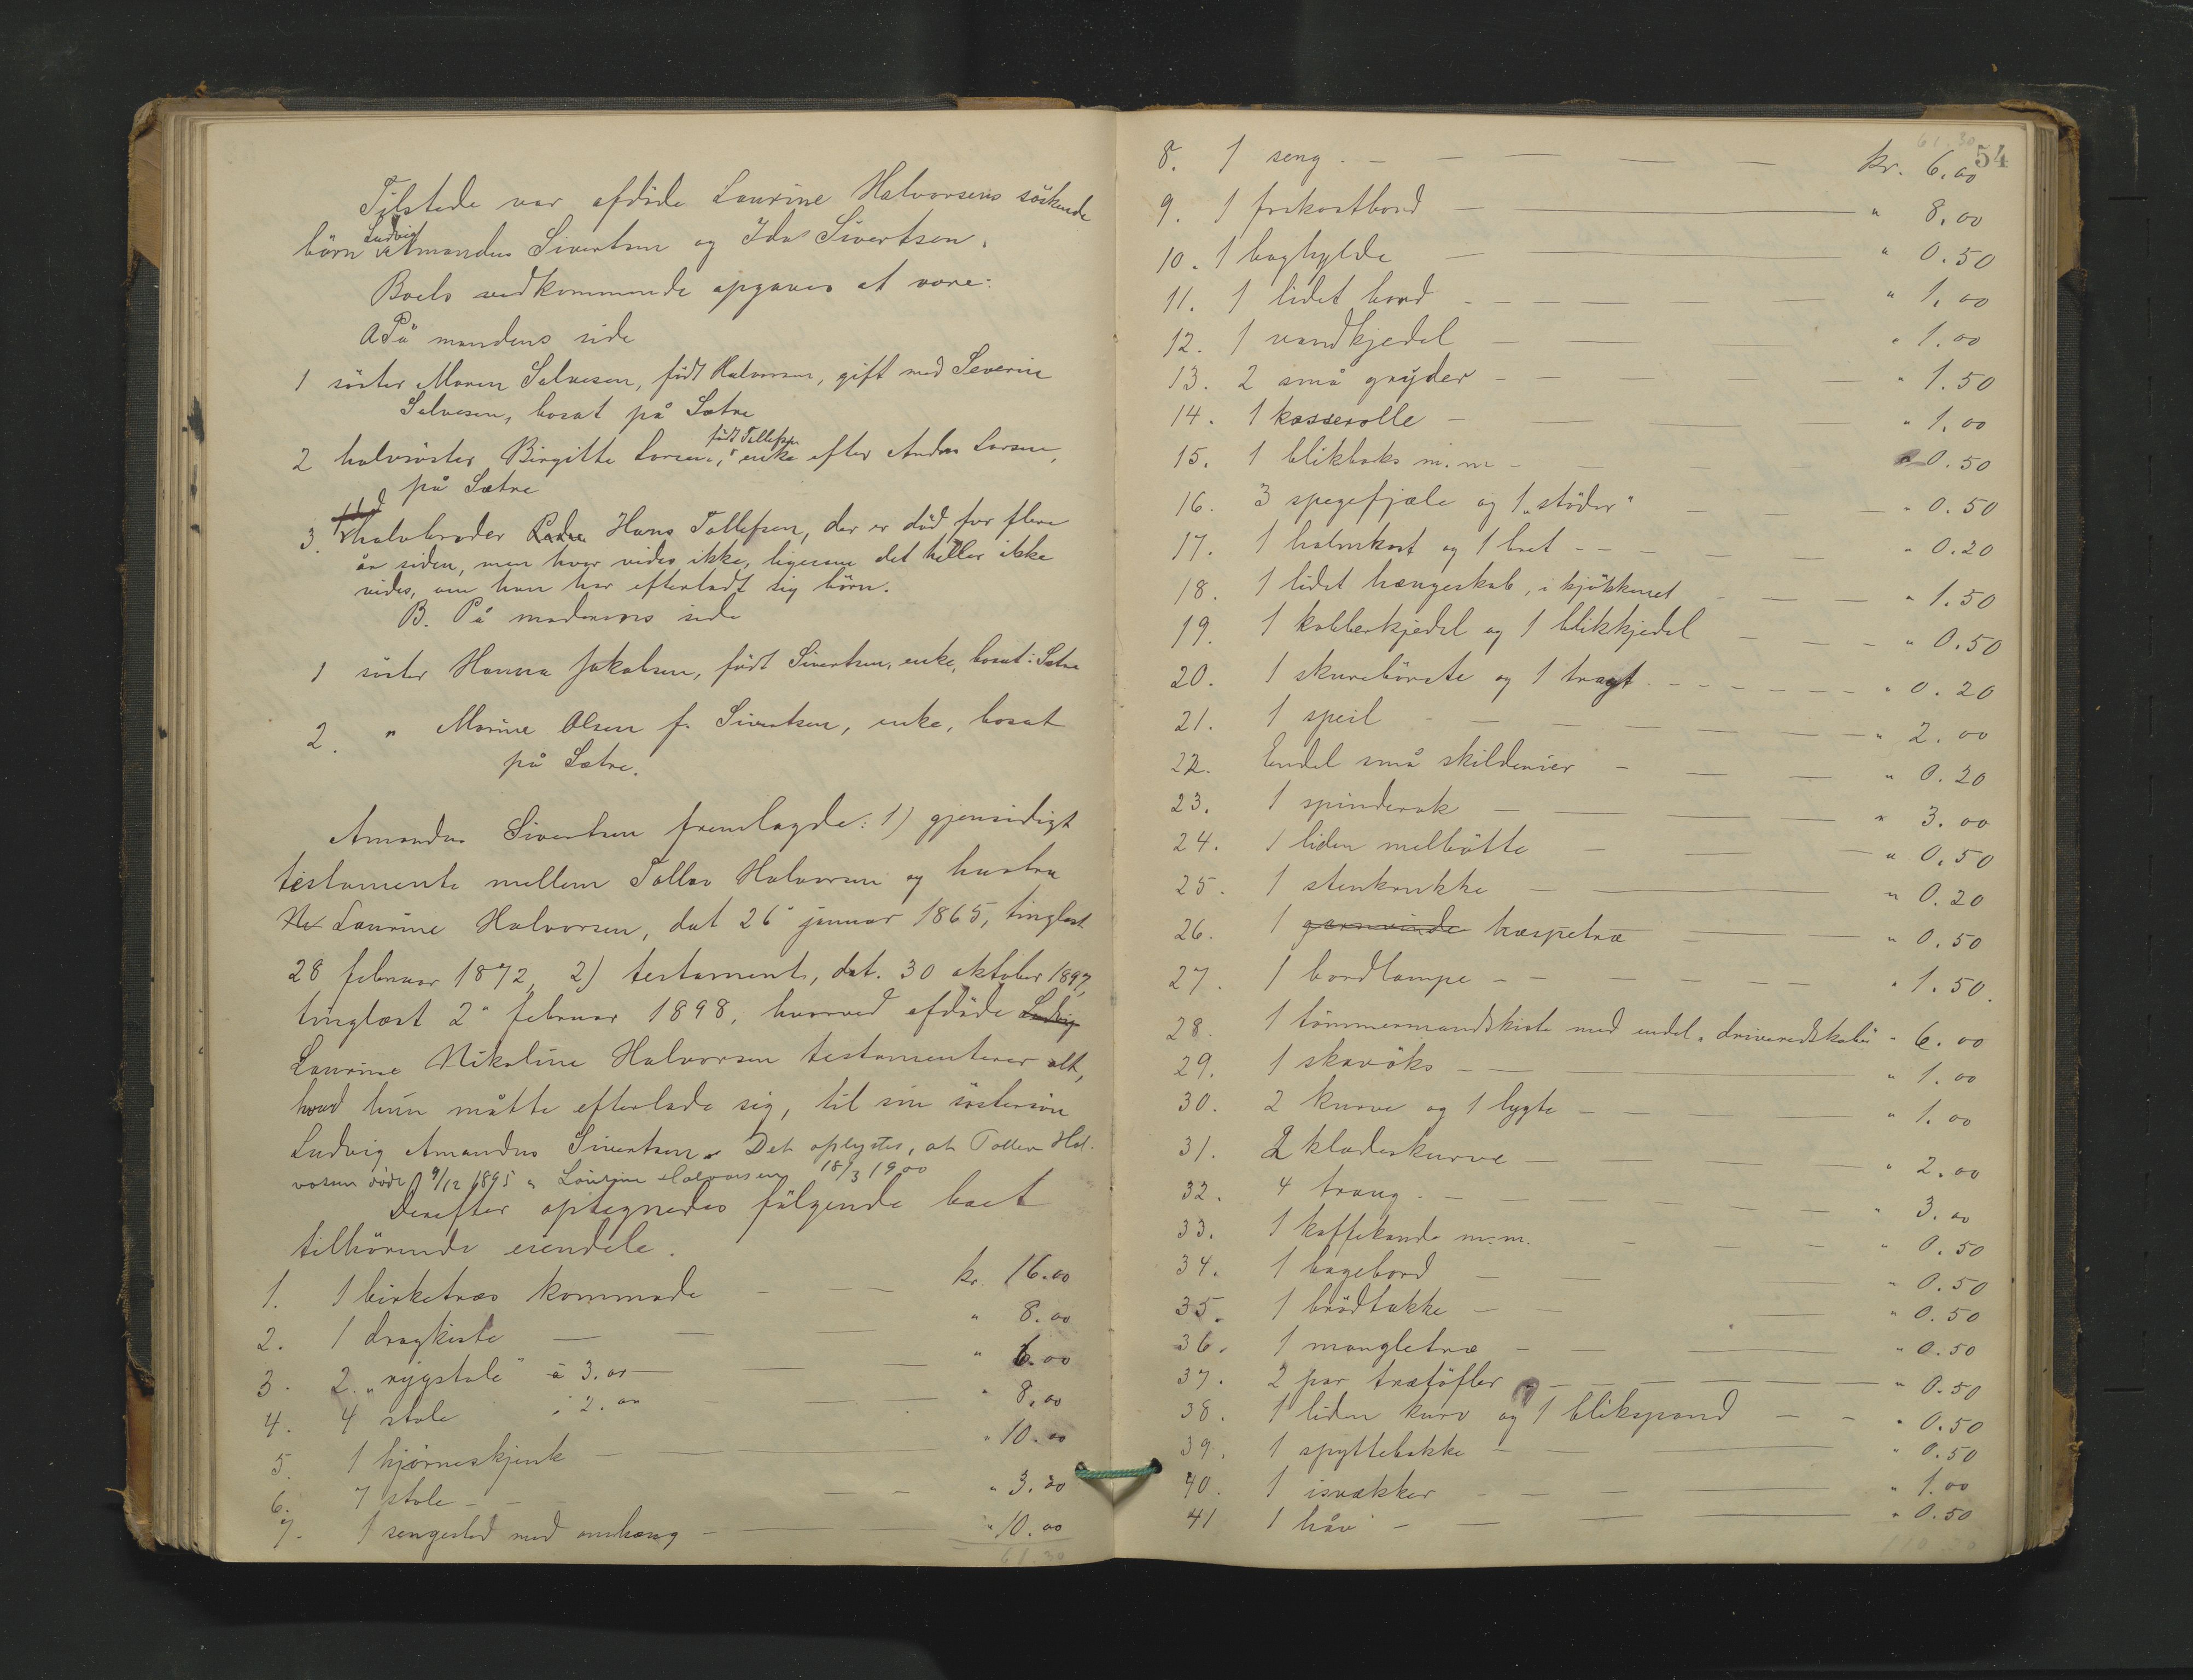 Tilstede var afdöde Laurine Halvorsens söskende
börn Ludvig Amandus Sivertsen og Ida Sivertsen.
Boets vedkommende opgaves at være:
A På mandens side
1 söster Maren Salvesen, född Halvorsen, gift med Severin
Salvesen, bosat på Sætre
2 halvsöster Birgitte Larsen, född Tollefsen, enke efter Anders Larsen,
på Sætre
3. halvbroder Peder Hans Tollefsen, der er död for flere
år siden, men hvor vides ikke, ligesom det heller ikke
vides, om han har efterladt sig börn.
B. På moderens side
1 söster Hanna Jakobsen, född Sivertsen, enke, bosat: Sætre
2. " Marine Olsen f. Sivertsen, enke, bosat
på Sætre.
Amandus Sivertsen fremlagde: 1) gjensidigt
testamente mellem Tollev Halvorsen og hustru
Laurine Halvorsen, dat 26 januar 1865, tinglæst
28 februar 1872, 2) testament, dat. 30 oktober 1897,
tinglæst 2 februar 1898, hvorved afdöde Ludvig
Laurine Nikoline Halvorsen testamenterer alt,
hvad hun måtte efterlade sig, til sin söstersön
Ludvig Amandus Sivertsen. Det oplystes, at Tollev Hal-
vorsen döde 9/12 1895 " Laurine Halvorsen 18/3 1900
Derefter optegnedes fölgende boet
tilhörende eiendele.
1. 1 birketræs kommode — — kr. 16.00
2. 1 dragkiste — — " 8.00
3. 2 "rygstole" à 3.00 — — " 6.00
4. 4 stole à 2.00 — — " 8.00
5. 1 hjörneskjenk — — " 10.00
6. 7 stole — — " 3.30
7. 1 sengested med omhæng — " 10.00
61.30
61.30
54
8. 1 seng — — kr. 6.00
9. 1 frokostbord — " 8.00
10. 1 boghylde — " 0.50
11. 1 lidet bord — " 1.00
12. 1 vandkjedel — " 1.00
13. 2 små gryder — " 1.50
14. 1 kasserolle — " 1.00
15. 1 blikboks m.m — " 0.50
16. 3 spegefjæle og 1 "stöder" — " 0.50
17. 1 halmkost og 1 bret — " 0.20
18. 1 lidet hængeskab, i kjökkenet — " 1.50
19. 1 kobberkjedel og 1 blikkjedel — " 0.50
20. 1 skurebörste og 1 tragt — " 0.20
21. 1 speil — " 2.00
22. Endel små skilderier — " 0.20
23. 1 spinderok — " 3.00
24. 1 liden melbötte — " 0.50
25. 1 stenkrukke — " 0.20
26. 1 garnvinde hæspetræ — " 0.50
27. 1 bordlampe — " 1.50.
28. 1 tömmermandskiste med endel "driveredskaber — " 6.00
29. 1 skavöks — " 1.00
30. 2 kurve og 1 lygte — " 1.00
31. 2 klædeskurve — " 2.00
32. 4 traug — " 3.00
33. 1 kaffekande m.m. — " 0.50
34. 1 bagebord — " 0.50
35. 1 brödtakke — " 0.50
36. 1 mangletræ — " 0.50
37. 2 par trætöfler — " 0.50
38. 1 liden kurv og 1 blikspand — " 0.50
39. 1 spyttebakke — " 0.50
40. 1 isvækker — " 1.00
41 1 håv — " 0.50